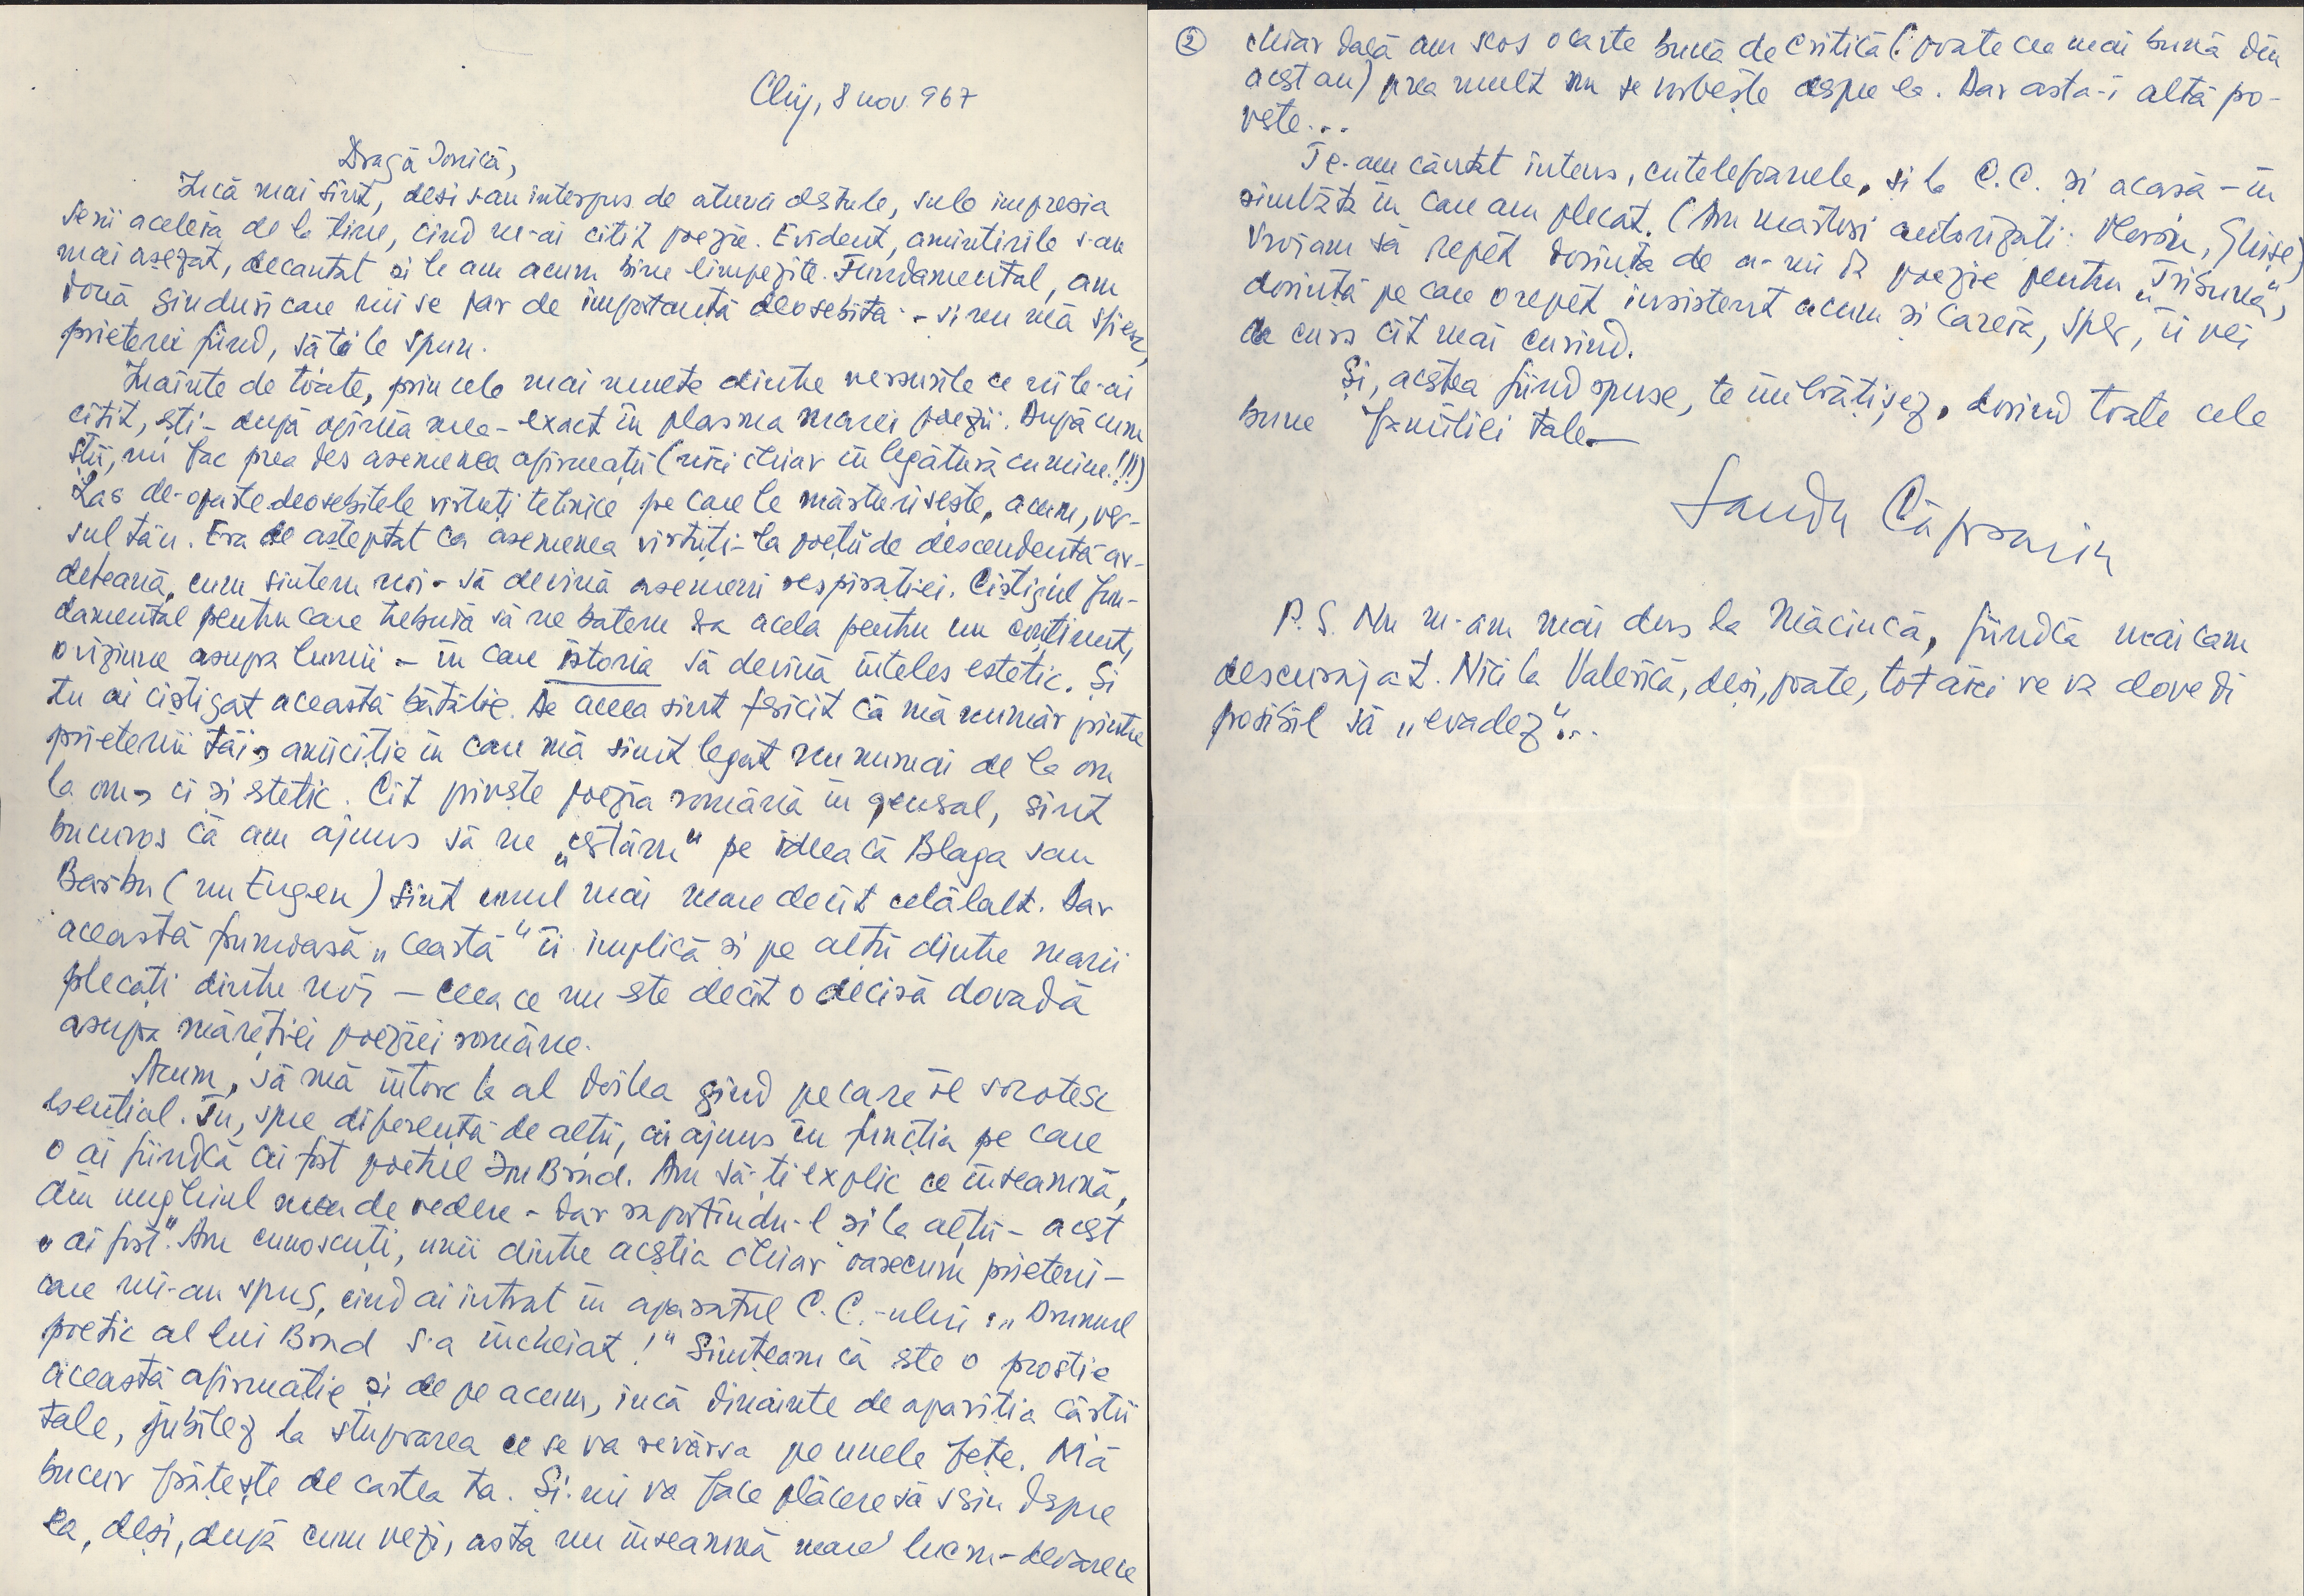 Cluj, 8 nov. 967
Dragă Ionică,
Încă mai sînt, deși s-au interpus de atunci destule, sub impresia
serii aceleia de la tine, cînd mi-ai citit poezie. Evident, amintirile s-au
mai așezat, decantat și le am acum bine limpezite. Fundamental, am
două gînduri care mi se par de importanță deosebită - și nu mă sfiesc,
prieteni fiind, să ți le spun.
Înainte de toate, prin cele mai multe dintre versurile ce mi le-ai
citit, ești - după opinia mea - exact în plasma marei poezii. După cum
știi, nu fac prea des asemenea afirmații (nici chiar în legătură cu mine!!!)
Las de-oparte deosebitele virtuți tehnice pe care le mărturisește, acum, ver-
sul tău. Era de așteptat ca asemenea virtuți - la poeții de descendență ar-
deleană, cum sîntem noi - să devină asemeni respirației. Cîștigul fun-
damental pentru care trebuia să ne batem era acela pentru un conținut,
o viziune asupra lumii - în care istoria să devină înțeles estetic. Și
tu ai cîștigat această bătălie. De aceea sînt fericit că mă număr printre
prietenii tăi, amiciție în care mă simt legat nu numai de la om
la om, ci și estetic. Cît privește poezia română în general, sînt
bucuros că am ajuns să ne „certăm" pe ideea că Blaga sau
Barbu (nu Eugen) sînt unul mai mare decît celălalt. Dar
această frumoasă „ceartă" îi implică și pe alții dintre marii
plecați dintre noi - ceea ce nu este decît o decisă dovadă
asupra măreției poeziei române.
Acum, să mă întorc la al doilea gînd pe care îl socotesc
esențial. Tu, spre diferență de alții, ai ajuns în funcția pe care
o ai fiindcă ai fost poetul Ion Brad. Am să-ți explic ce înseamnă,
din unghiul meu de vedere - dar raportîndu-l și la alții - acest
„ai fost". Am cunoscuți, unii dintre aceștia chiar oarecum prieteni -
care mi-au spus, cînd ai intrat în aparatul C.C.-ului: „Drumul
poetic al lui Brad s-a încheiat!" Simțeam că este o prostie
această afirmație și de pe acum, încă dinainte de apariția cărții
tale, jubilez la stupoarea ce se va revărsa pe unele fețe. Mă
bucur frățește de cartea ta. Și-mi va face plăcere să scriu despre
ea, deși, după cum vezi, asta nu înseamnă mare lucru - deoarece
② chiar dacă am scos o carte bună de critică (poate cea mai bună din
acest an) prea mult nu se vorbește despre ea. Dar asta-i altă po-
veste...
Te-am căutat intens, cu telefoanele, și la C.C. și acasă - în
sîmbăta în care am plecat. (Am martori autorizați: Florin, Ghișe)
Vroiam să repet dorința de a-mi da poezie pentru „Tribuna",
dorință pe care o repet insistent acum și căreia, sper, îi vei
da curs cît mai curînd.
Și, acestea fiind spuse, te îmbrățișez, dorind toate cele
bune familiei tale -
Sandu Căprariu
P.S. Nu m-am mai dus la Măciucă, fiindcă m-ai cam
descurajat. Nici la Valerică, deși, poate, tot aici se va dovedi
posibil să „evadez"...